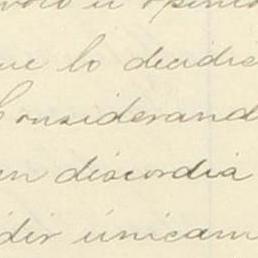 voto u opinió
ue lo decidie
Considerand
en discordia
dir únicam